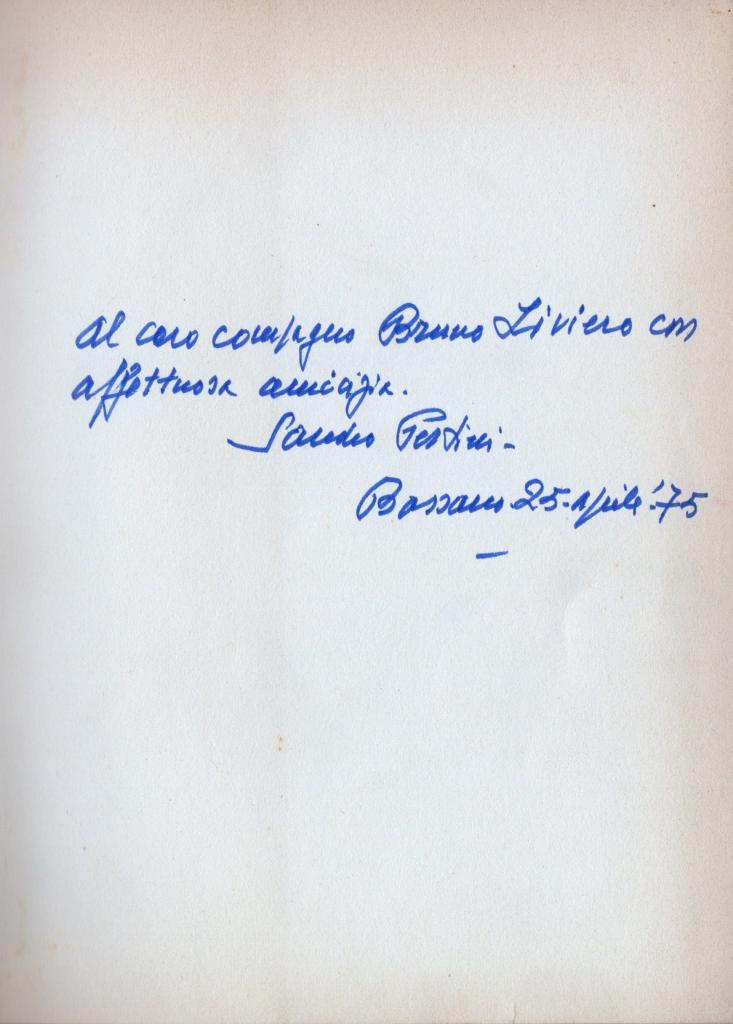 Al caro compagno Bruno Liviero con
affettuosa amicizia.
Sandro Pertini -
Bassano 25. aprile '75